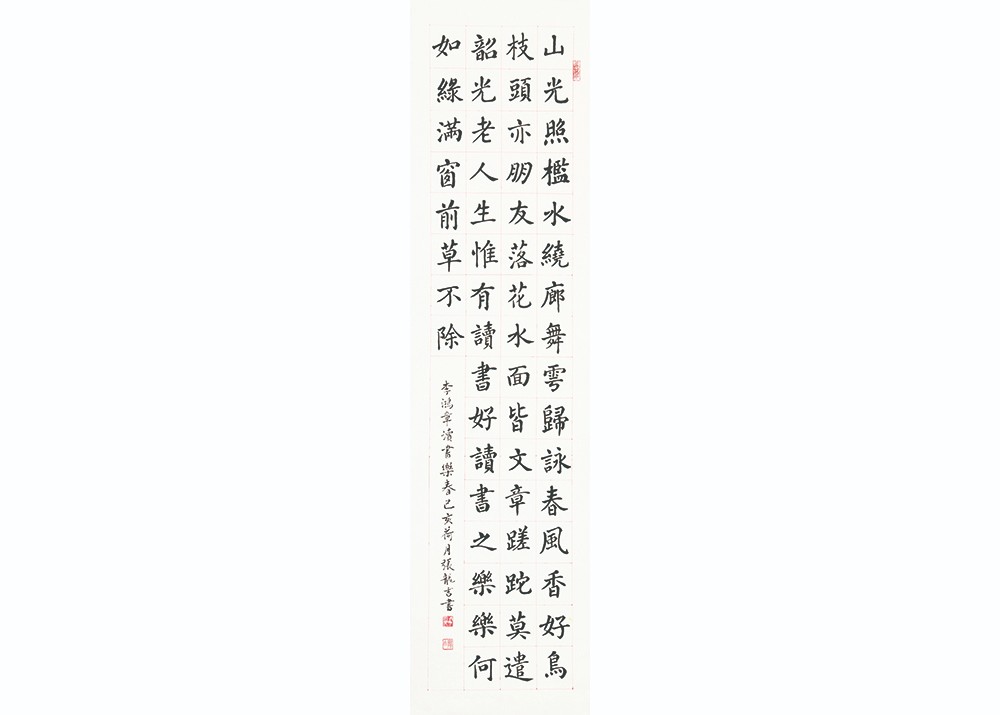 山光照檻水繞廊舞雩歸詠春風香好鳥
枝頭亦朋友落花水面皆文章蹉跎莫遣
韶光老人生惟有讀書好讀書之樂樂何
如綠滿窗前草不除
李鴻章讀書樂春己亥荷月張龍吉書